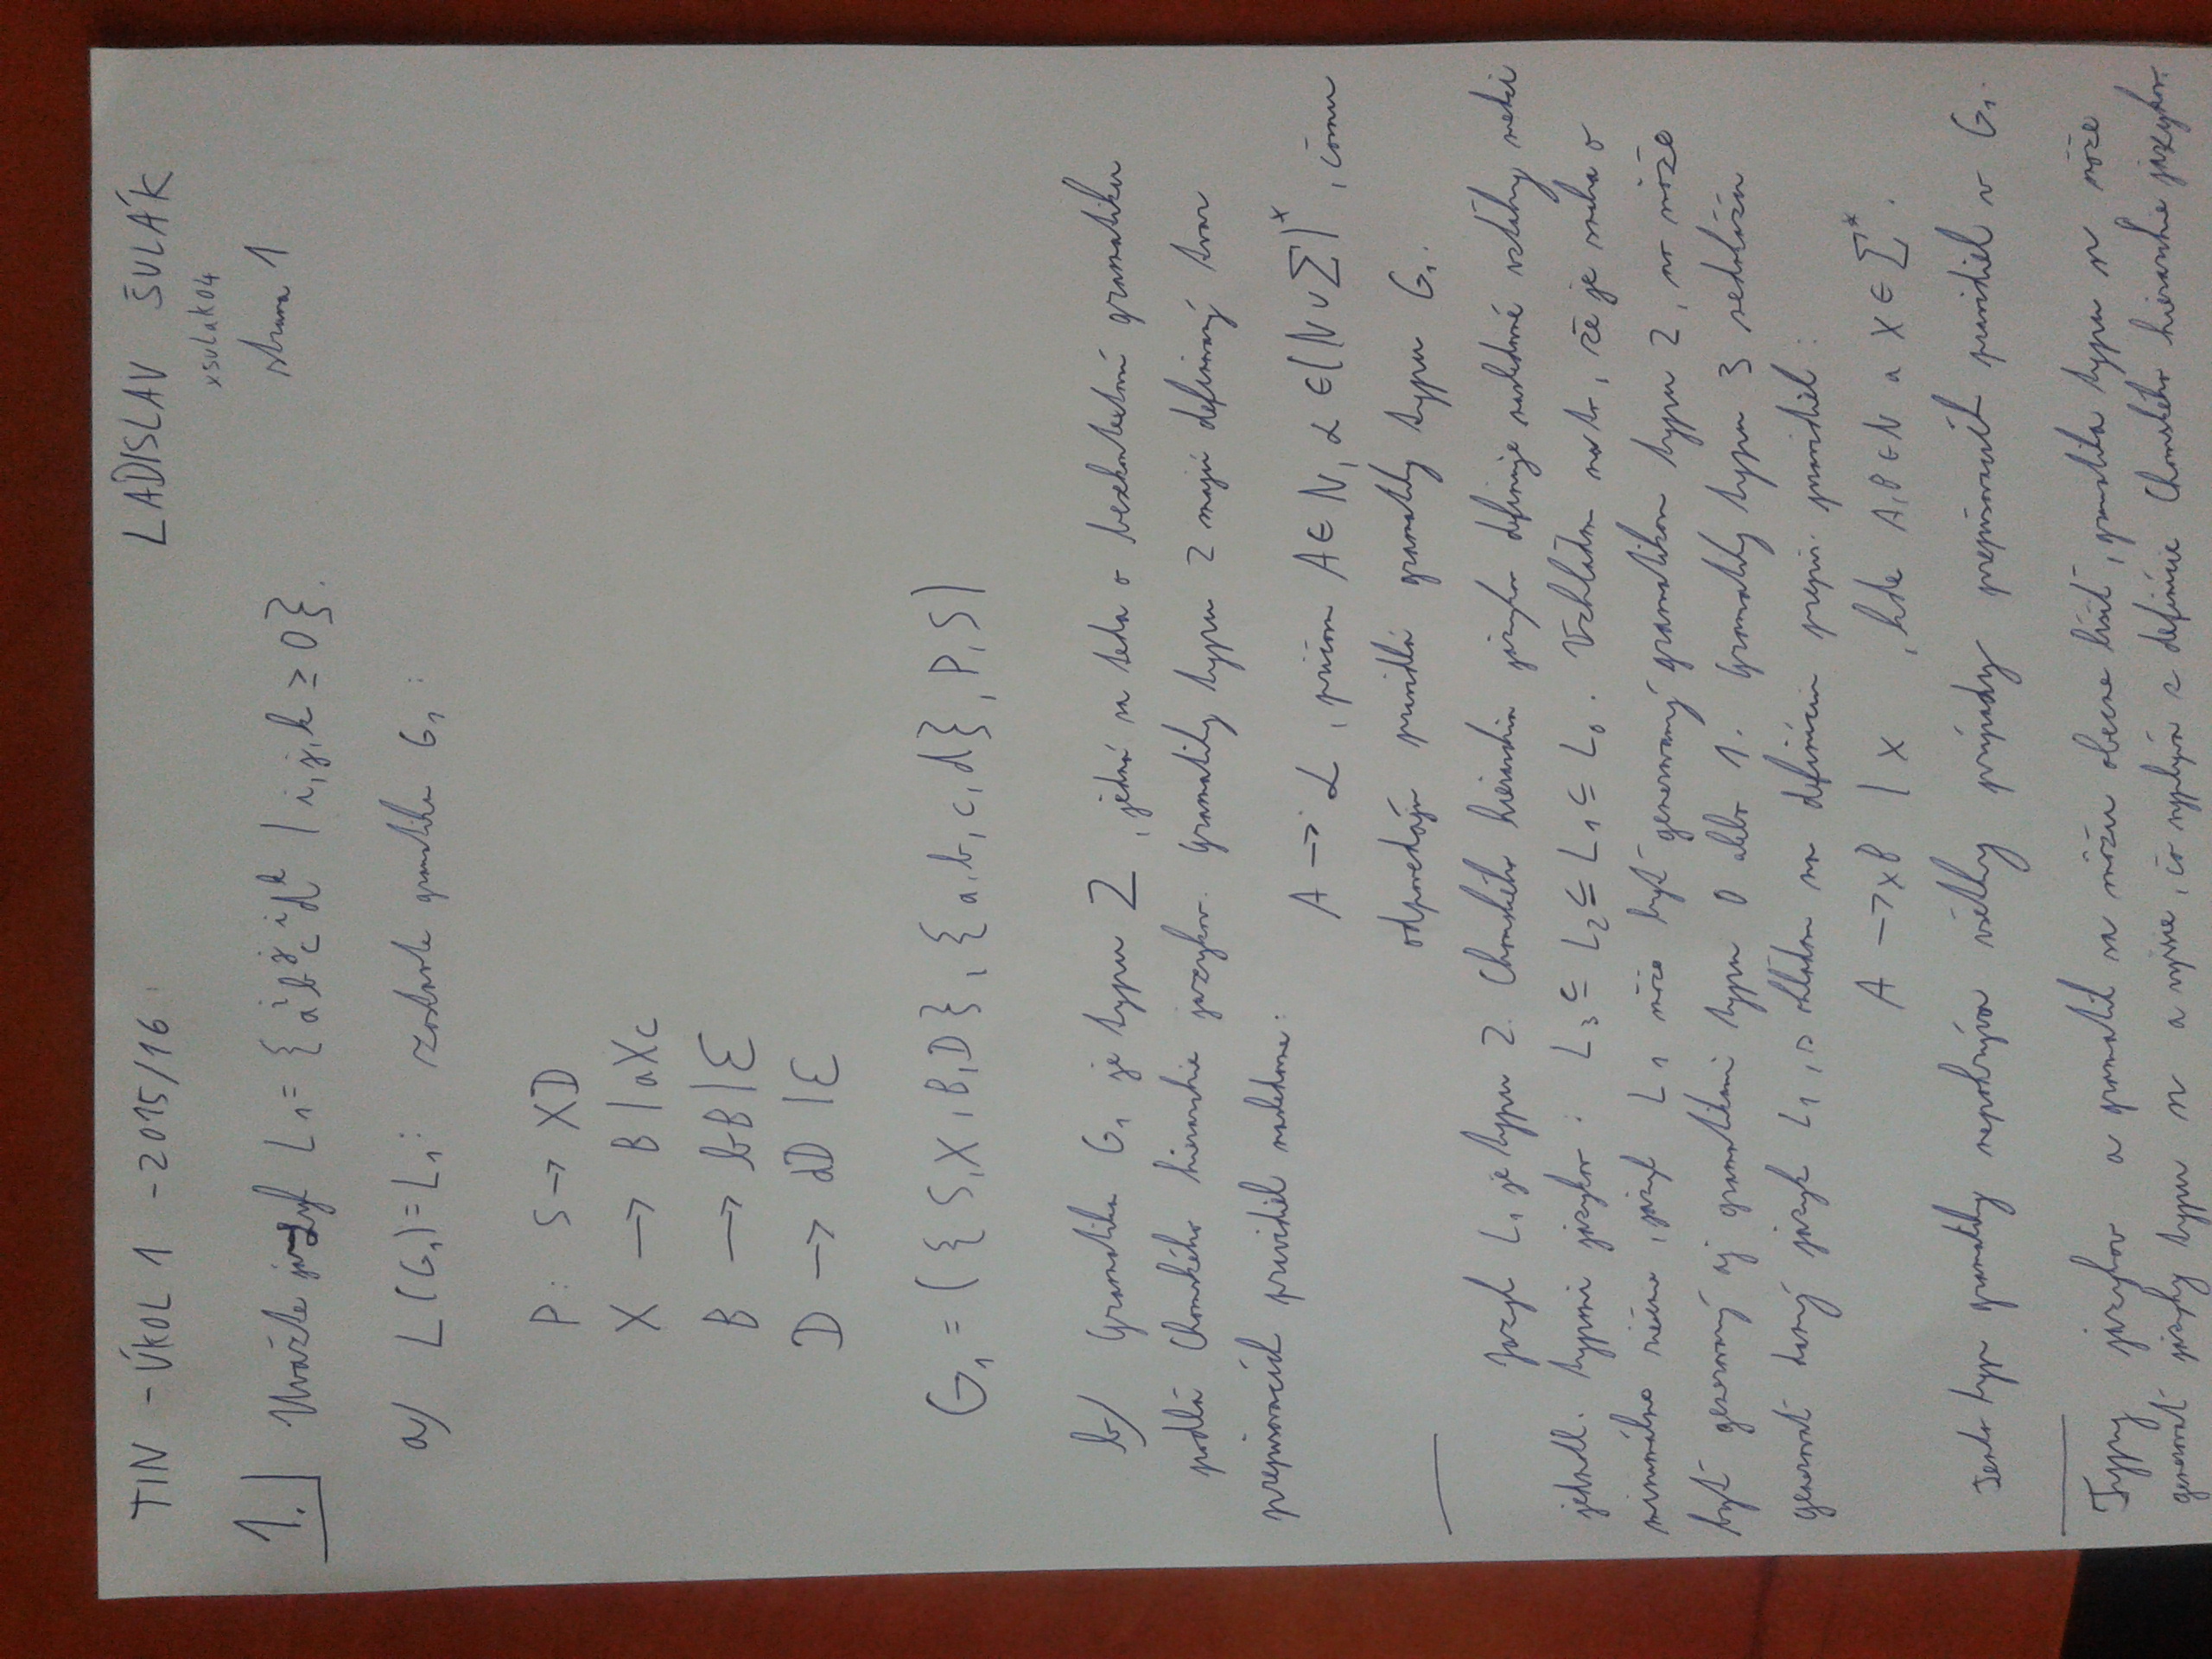 TIN - ÚKOL 1 - 2015/16
LADISLAV ŠULÁK
xsulak04
strana 1
1. Uvážte jazyk L₁ = { aⁱ bʲ cⁱ dᵏ | i, j, k ≥ 0 }.
a) L(G₁) = L₁: zostavte gramatiku G₁:
P: S → XD
X → B | aXc
B → bB | ε
D → dD | ε
G₁ = ({ S, X, B, D }, { a, b, c, d }, P, S)
b) Gramatika G₁ je typu 2, jedná sa teda o bezkontextovú gramatiku
podľa Chomského hierarchie jazykov. Gramatiky typu 2 majú definovaný tvar
prepisovacích pravidiel nasledovne:
A → α, pričom A ∈ N, α ∈ (N ∪ Σ)*, čomu
odpovedajú pravidlá gramatiky typu G₁.
Jazyk L₁ je typu 2. Chomského hierarchia jazykov definuje nasledovné vzťahy medzi
jednotl. typmi jazykov: L₃ ⊆ L₂ ⊆ L₁ ⊆ L₀. Vzhľadom na to, že je snaha o
minimálne riešenie, jazyk L₁ môže byť generovaný gramatikou typu 2, no môže
byť generovaný aj gramatikami typu 0 alebo 1. Gramatiky typu 3 nedokážu
generovať daný jazyk L₁, s ohľadom na definíciu prepis. pravidiel:
A → xB | x , kde A, B ∈ N a x ∈ Σ*.
Tento typ gramatiky nepokrýva všetky prípady prepisovacích pravidiel v G₁.
Typy jazykov a gramatík sa môžu obecne líšiť, gramatika typu n môže
generovať jazyky typu n a vyššie, čo vyplýva z definície Chomského hierarchie jazykov.